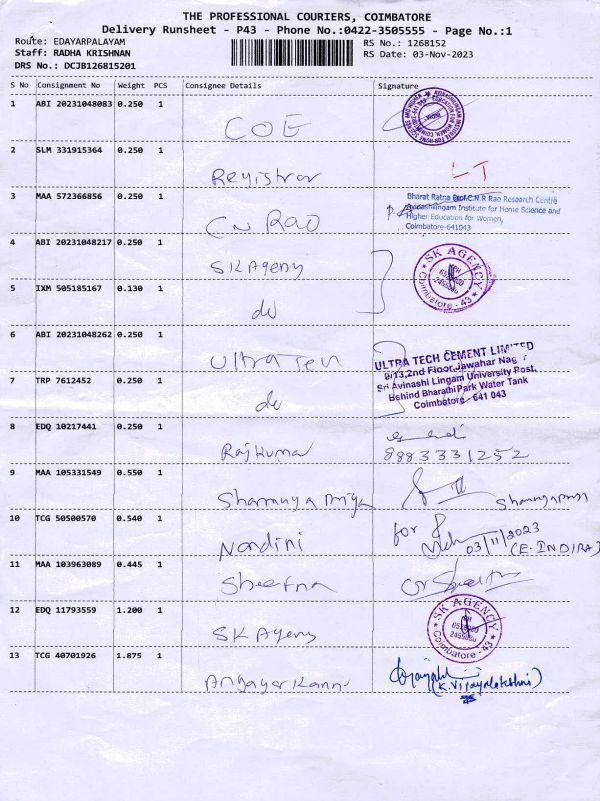 THE PROFESSIONAL COURIERS, COIMBATORE
Delivery Runsheet - P43 - Phone No.:0422-3505555 - Page No.:1
Route: EDAYARPALAYAM
RS No.: 1268152
Staff: RADHA KRISHNAN
RS Date: 03-Nov-2023
DRS No.: DCJB126815201
S No Consignment No Weight PCS Consignee Details Signature
1 ABI 20231048083 0.250 1 COE
2 SLM 331915364 0.250 1 Registrar LT
3 MAA 572366856 0.250 1 CN RAO
Bharat Ratna Prof.C.N.R Rao Research Centre
Avinashilingam Institute for Home Science and
Higher Education for Women,
Coimbatore-641043
4 ABI 20231048217 0.250 1 SK Agency
SK AGENCY
Coimbatore - 43
5 IXM 505185167 0.130 1 do
6 ABI 20231048262 0.250 1 Ultra Tech
ULTRA TECH CEMENT LIMITED
9/13,2nd Floor,Jawahar Nagar
Sri Avinashi Lingam University Post,
Behind Bharathi Park Water Tank
Coimbatore- 641 043
7 TRP 7612452 0.250 1 do
8 EDQ 10217441 0.250 1 Rajkumar
8883331252
9 MAA 105331549 0.550 1 Shamugapriya
10 TCG 50500570 0.540 1 Nandini for
03/11/2023
(E. INDIRA)
11 MAA 103963089 0.445 1
12 EDQ 11793559 1.200 1 SK Agency
SK AGENCY
Coimbatore - 43
13 TCG 40701926 1.875 1
(K. Vijayalakshmi)